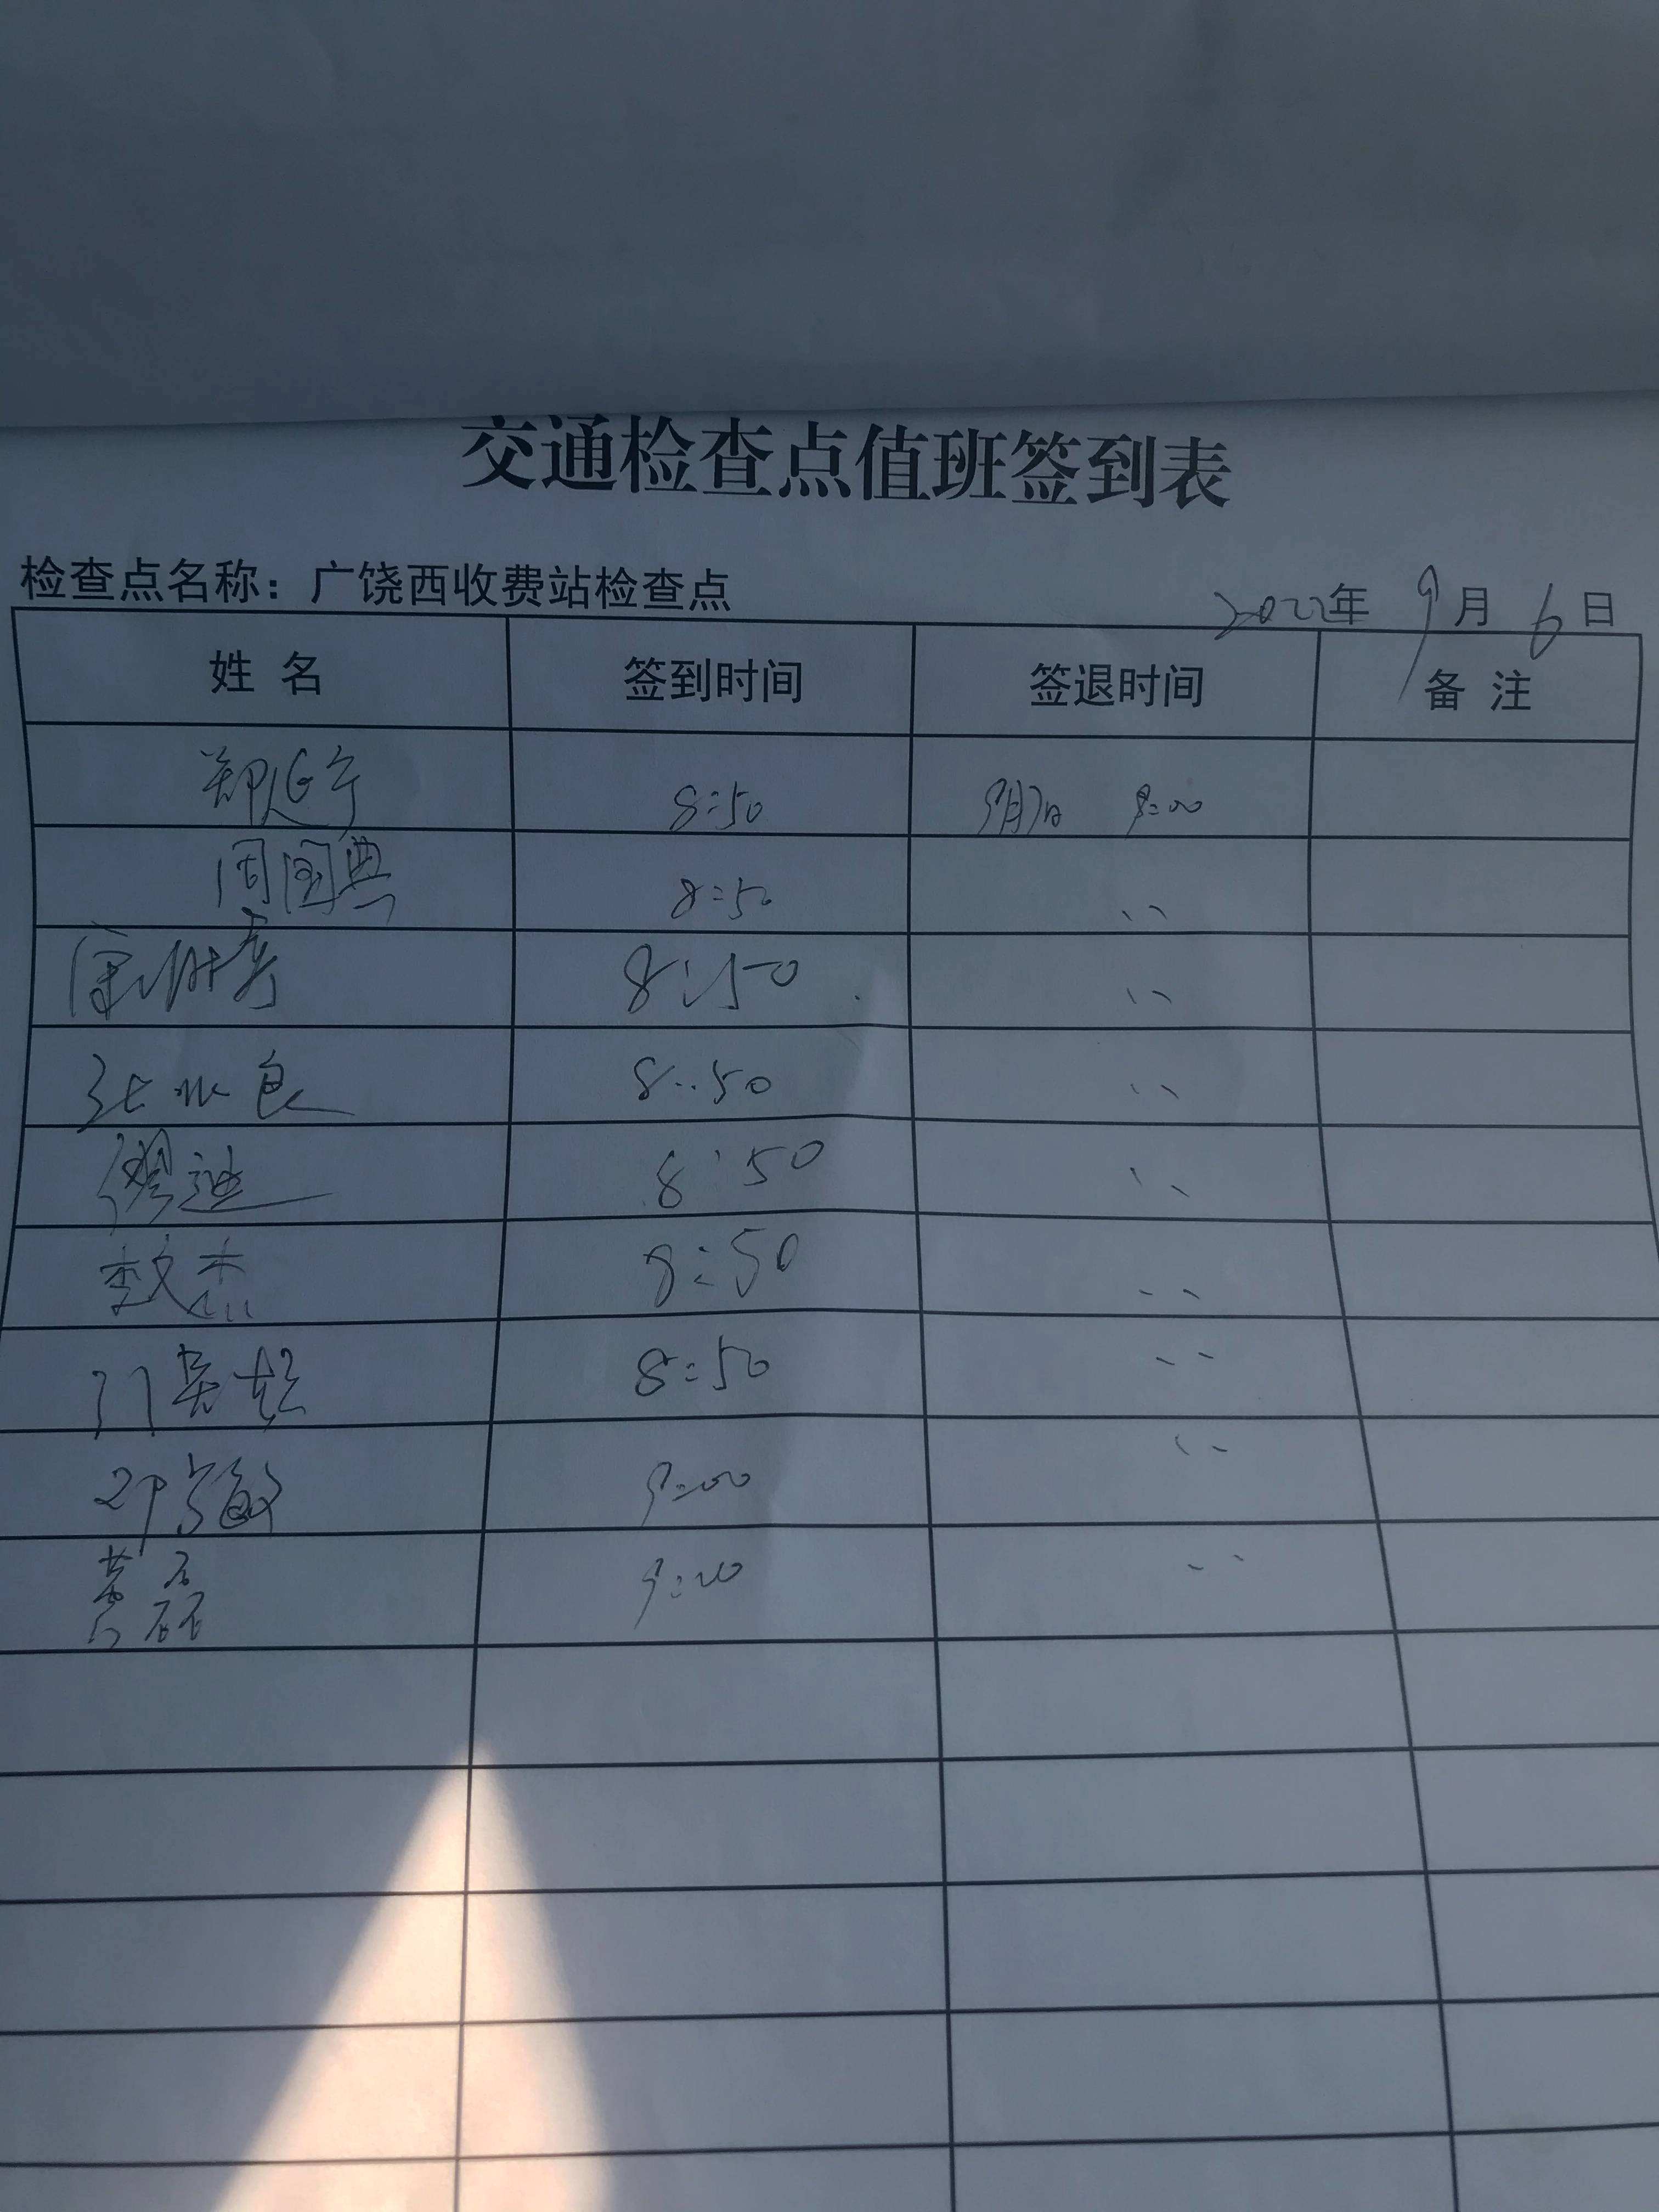 交通检查点值班签到表
检查点名称：广饶西收费站检查点 2022年 9月 6日
姓 名 签到时间 签退时间 备 注
郑延宁 8:50 9月7日 9:00
周国典 8:50 〃
8:50 〃
张水良 8:50 〃
缪迪 8:50 〃
李文杰 8:50 〃
门英超 8:50 〃
9:00 〃
黄磊 9:00 〃